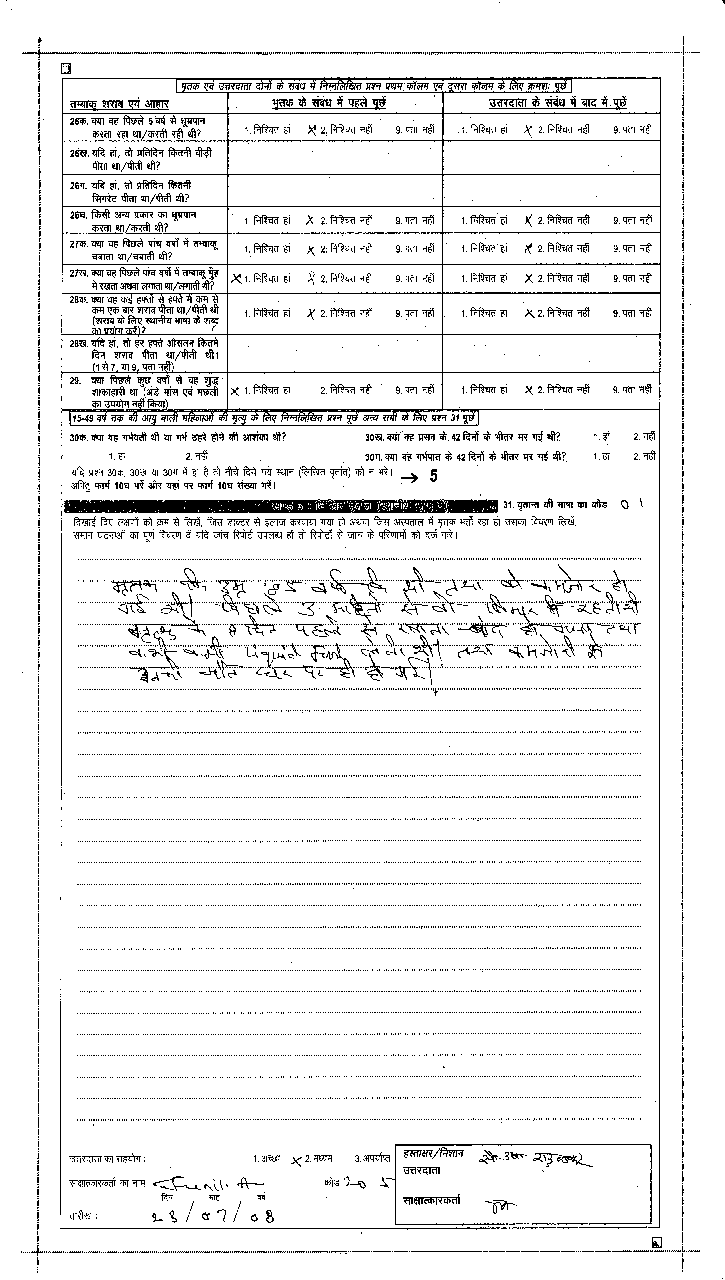 मृतक एवं उत्तरदाता दोनों के संबंध में निम्नलिखित प्रश्न प्रथम कॉलम एवं दूसरा कॉलम के लिए क्रमशः पूछें
तम्बाकू शराब एवं आहार मृतक के संबंध में पहले पूछें उत्तरदाता के संबंध में बाद में पूछें
26क. क्या वह पिछले 5 वर्ष से धूम्रपान
करता रहा था/करती रही थी? 1. निश्चित हां X 2. निश्चित नहीं 9. पता नहीं 1. निश्चित हां X 2. निश्चित नहीं 9. पता नहीं
26ख. यदि हां, तो प्रतिदिन कितनी बीड़ी
पीता था/पीती थी?
26ग. यदि हां, तो प्रतिदिन कितनी
सिगरेट पीता था/पीती थी?
26घ. किसी अन्य प्रकार का धूम्रपान
करता था/करती थी? 1. निश्चित हां X 2. निश्चित नहीं 9. पता नहीं 1. निश्चित हां X 2. निश्चित नहीं 9. पता नहीं
27क. क्या वह पिछले पांच वर्षों में तम्बाकू
चबाता था/चबाती थी? 1. निश्चित हां X 2. निश्चित नहीं 9. पता नहीं 1. निश्चित हां X 2. निश्चित नहीं 9. पता नहीं
27ख. क्या वह पिछले पांच वर्षों में तम्बाकू मुँह
में रखता अथवा लगाता था/लगाती थी? X 1. निश्चित हां X 2. निश्चित नहीं 9. पता नहीं 1. निश्चित हां X 2. निश्चित नहीं 9. पता नहीं
28क. क्या वह कई हफ्तों से हफ्ते में कम से
कम एक बार शराब पीता था/पीती थी
(शराब के लिए स्थानीय भाषा के शब्द
का प्रयोग करें)? 1. निश्चित हां X 2. निश्चित नहीं 9. पता नहीं 1. निश्चित हां X 2. निश्चित नहीं 9. पता नहीं
28ख. यदि हां, तो हर हफ्ते औसतन कितने
दिन शराब पीता था/पीती थी।
(1 से 7, या 9, पता नहीं)
29. क्या पिछले कुछ वर्षों से वह शुद्ध
शाकाहारी था (अंडे मांस एवं मछली
का उपयोग नहीं किया) X 1. निश्चित हां 2. निश्चित नहीं 9. पता नहीं 1. निश्चित हां X 2. निश्चित नहीं 9. पता नहीं
15-49 वर्ष तक की आयु वाली महिलाओं की मृत्यु के लिए निम्नलिखित प्रश्न पूछें अन्य सभी के लिए प्रश्न 31 पूछें
30क. क्या वह गर्भवती थी या गर्भ ठहरे होने की आशंका थी? 30ख. क्या वह प्रसव के 42 दिनों के भीतर मर गई थी? 1. हां 2. नहीं
1. हां 2. नहीं 30ग. क्या वह गर्भपात के 42 दिनों के भीतर मर गई थी? 1. हां 2. नहीं
यदि प्रश्न 30क, 30ख या 30ग में हां है तो नीचे दिये गये स्थान (लिखित वृत्तांत) को न भरें। → 5
अपितु फार्म 10घ भरें और यहां पर फार्म 10घ संख्या भरें।
31. वृत्तान्त की भाषा का कोड 0 1
दिखाई दिए लक्षणों को क्रम से लिखें, जिस डाक्टर से इलाज करवाया गया हो अथवा जिस अस्पताल में मृतक भर्ती रहा हो उसका विवरण लिखें,
समान घटनाओं का पूर्ण विवरण दें यदि जांच रिपोर्ट उपलब्ध हो तो रिपोर्ट से जांच के परिणामों को दर्ज करें।
मृतक की उम्र वर्ष थी तथा वो कमजोर हो
गई थी। पिछले 3 महिनों से वो बिमार रहती थी
दिन पहले से खाना तथा
कभी कभी थी। तथा कमजोरी से
उनकी मौत घर पर ही हो गई।
उत्तरदाता का सहयोग : 1. अच्छा X 2. मध्यम 3. अपर्याप्त हस्ताक्षर/निशान
उत्तरदाता
साक्षात्कारकर्ता का नाम Sunil कोड 20 5
दिन माह वर्ष साक्षात्कारकर्ता
तारीख : 23/07/08